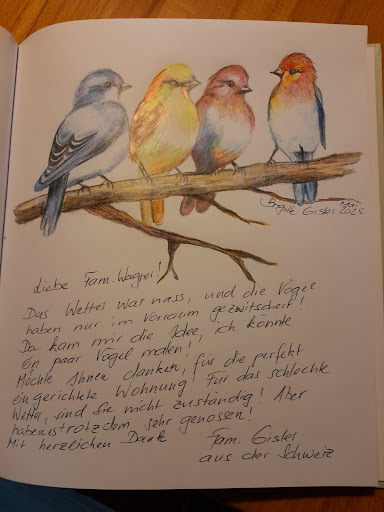 Brigitte Gisler Mai 2025
Liebe Fam. Wagner!
Das Wetter war nass, und die Vögel
haben nur im Vorraum gezwitschert!
Da kam mir die Idee, ich könnte
ein paar Vögel malen!
Möchte Ihnen danken, für die perfekt
eingerichtete Wohnung! Für das schlechte
Wetter, sind Sie nicht zuständig! Aber
haben es trotzdem sehr genossen!
Mit herzlichen Dank Fam. Gisler
aus der Schweiz